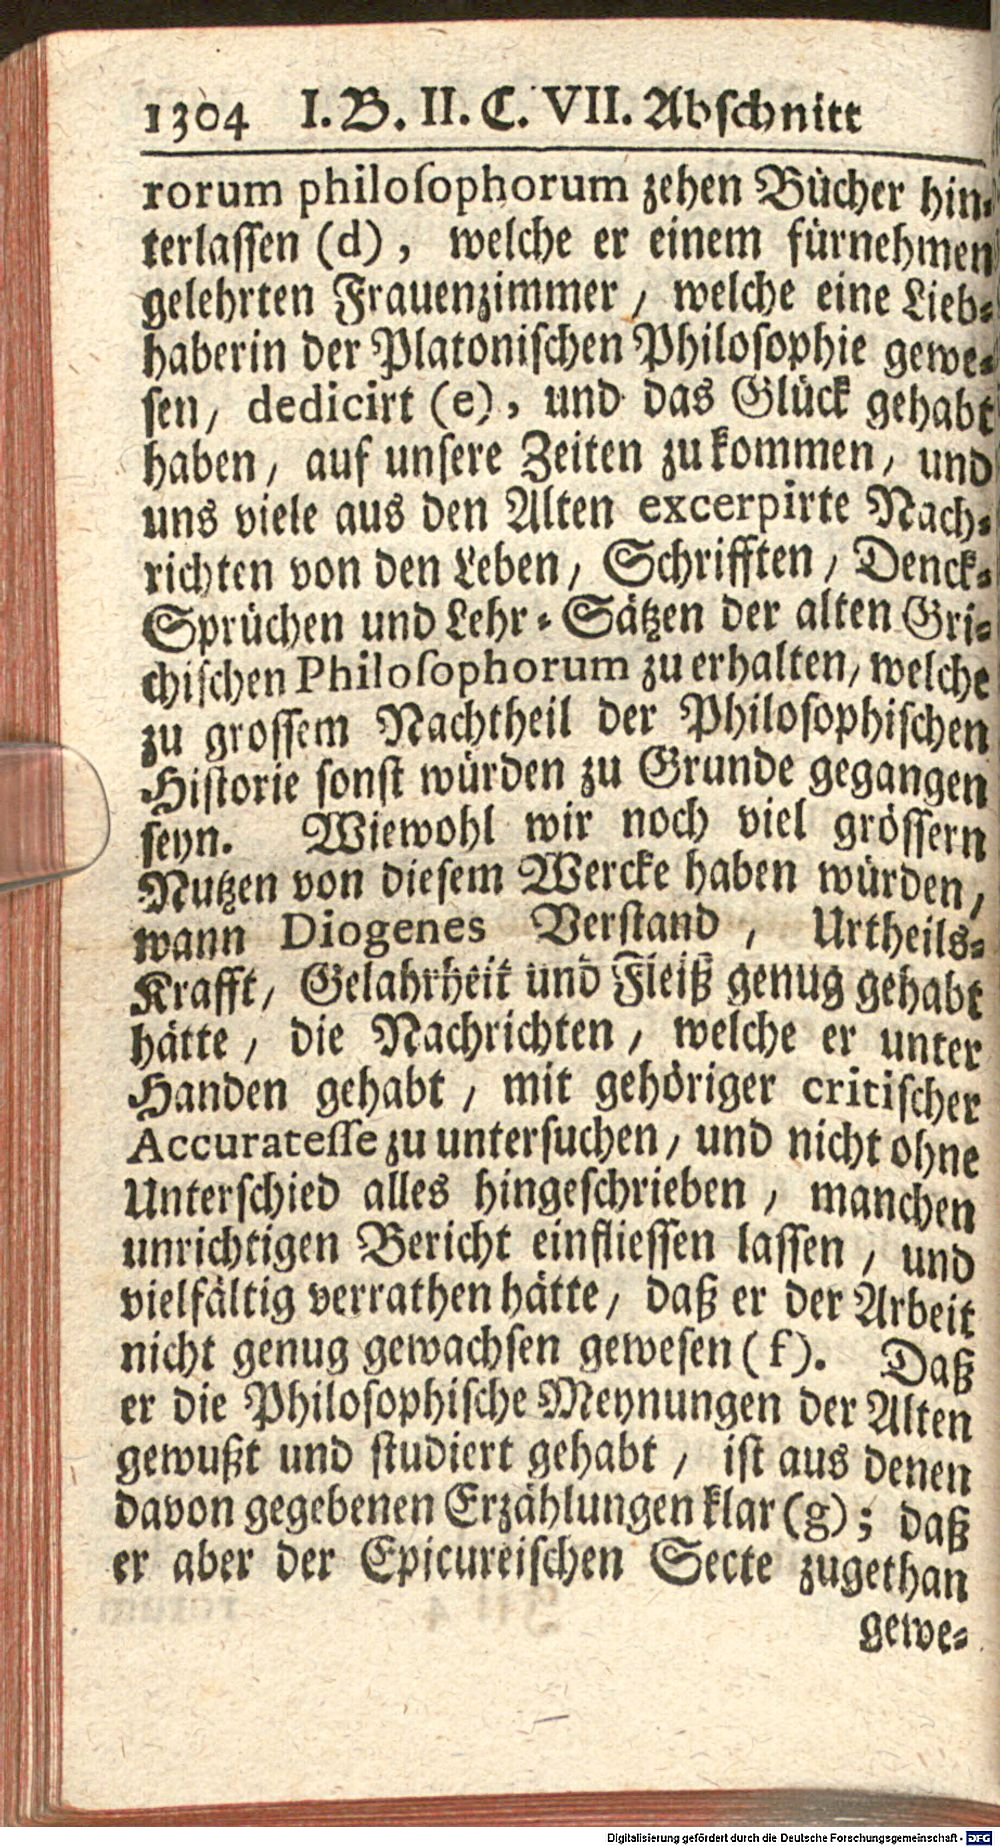 1304 I. B. II. C. VII. Abschnitt
rorum philosophorum zehen Bücher hin-
terlassen (d), welche er einem fürnehmen
gelehrten Frauenzimmer, welche eine Lieb-
haberin der Platonischen Philosophie gewe-
sen, dedicirt (e), und das Glück gehabt
haben, auf unsere Zeiten zu kommen, und
uns viele aus den Alten excerpirte Nach-
richten von den Leben, Schrifften, Denck-
Sprüchen und Lehr-Sätzen der alten Gri-
chischen Philosophorum zu erhalten, welche
zu grossem Nachtheil der Philosophischen
Historie sonst würden zu Grunde gegangen
seyn. Wiewohl wir noch viel grössern
Nutzen von diesem Wercke haben würden,
wann Diogenes Verstand, Urtheils-
Krafft, Gelahrheit und Fleiß genug gehabt
hätte, die Nachrichten, welche er unter
Handen gehabt, mit gehöriger critischer
Accuratesse zu untersuchen, und nicht ohne
Unterschied alles hingeschrieben, manchen
unrichtigen Bericht einfliessen lassen, und
vielfältig verrathen hätte, daß er der Arbeit
nicht genug gewachsen gewesen (f). Daß
er die Philosophische Meynungen der Alten
gewußt und studiert gehabt, ist aus denen
davon gegebenen Erzählungen klar (g); daß
er aber der Epicureischen Secte zugethan
gewe-
Digitalisierung gefördert durch die Deutsche Forschungsgemeinschaft - DFG